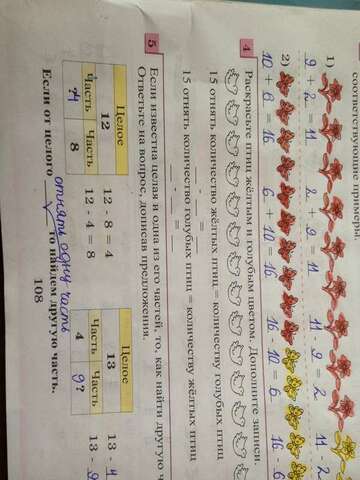 соответствующие примеры.
1)
9 + 2 = 11
2 + 9 = 11
11 - 9 = 2
11 - 2
2)
10 + 6 = 16
6 + 10 = 16
16 - 10 = 6
16 - 6
4 Раскрасьте птиц жёлтым и голубым цветом. Дополните записи.
15 отнять количество жёлтых птиц = количеству голубых птиц
__ - __ = __
15 отнять количество голубых птиц = количеству жёлтых птиц
__ - __ = __
5 Если известна целая и одна из его частей, то, как найти другую ч
Ответьте на вопрос, дописав предложения.
Целое
12
Часть Часть
?4 8
12 - 8 = 4
12 - 4 = 8
Целое
13
Часть Часть
4 9?
13 - 4
13 - 9
Если от целого отнять одну часть то найдем другую часть.
108